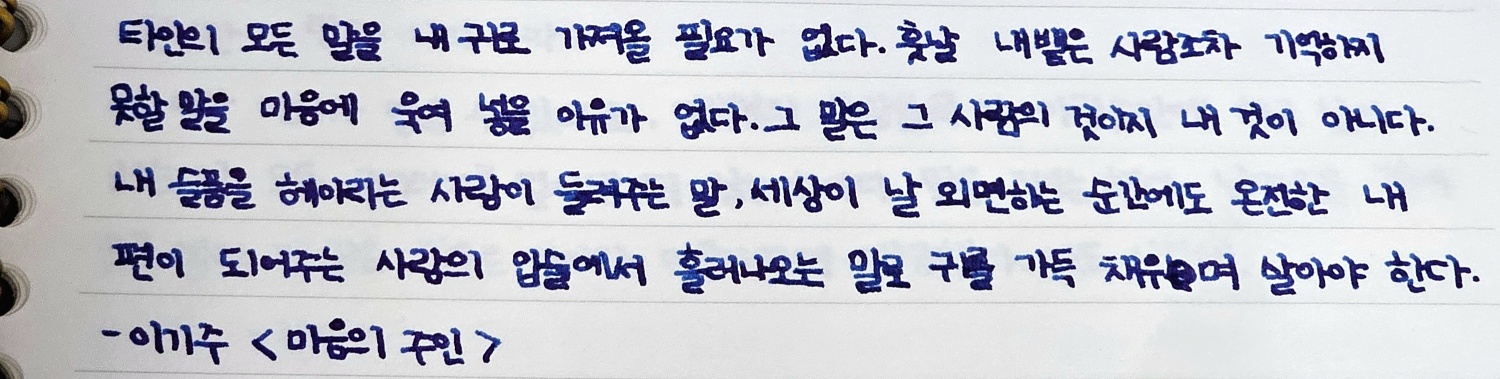 타인의 모든 말을 내 귀로 가져올 필요가 없다. 훗날 내뱉은 사람조차 기억하지
못할 말을 마음에 욱여 넣을 이유가 없다. 그 말은 그 사람의 것이지 내 것이 아니다.
내 슬픔을 헤아리는 사람이 들려주는 말, 세상이 날 외면하는 순간에도 온전한 내
편이 되어주는 사람의 입술에서 흘러나오는 말로 귀를 가득 채우며 살아야 한다.
- 이기주 < 마음의 주인 >